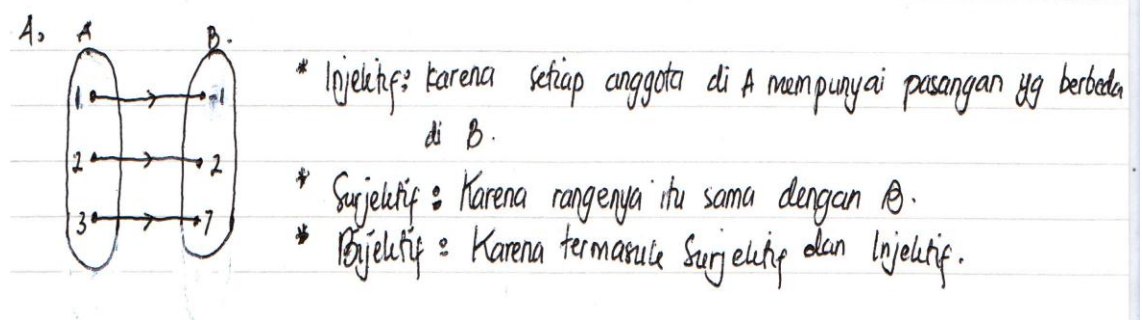 4. A B.
1 -1
* Injektif: karena setiap anggota di A mempunyai pasangan yg berbeda
di B.
2 2
* Surjektif : Karena rangenya itu sama dengan B.
3 7
* Bijektif : Karena termasuk Surjektif dan Injektif.